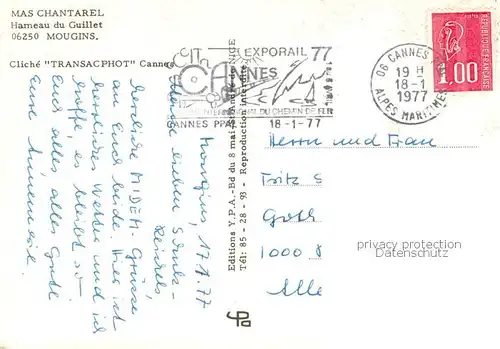 MAS CHANTAREL
Hameau du Guillet
06250 MOUGINS.
Cliché "TRANSACPHOT" Cannes
EXPORAIL 77
CANNES
DU CHEMIN DE FER
CANNES PPAL
18-1-77
06 CANNES
19 H
18-1
1977
ALPES MARITIMES
REPUBLIQUE FRANCAISE
1.00
Editions Y.P.A.-Bd du 8 mai
Tél: 85 - 28 - 93 - Reproduction interdite
Mougins, 17.1.77
lieben
herzliche MIDEM-Grüsse
an Euch beide. Hier ist
herrliches Wetter und ich
hoffe es bleibt so.
Euch alles alles Gute
Eure
Herrn und Frau
Fritz S
1000 8
privacy protection
Datenschutz